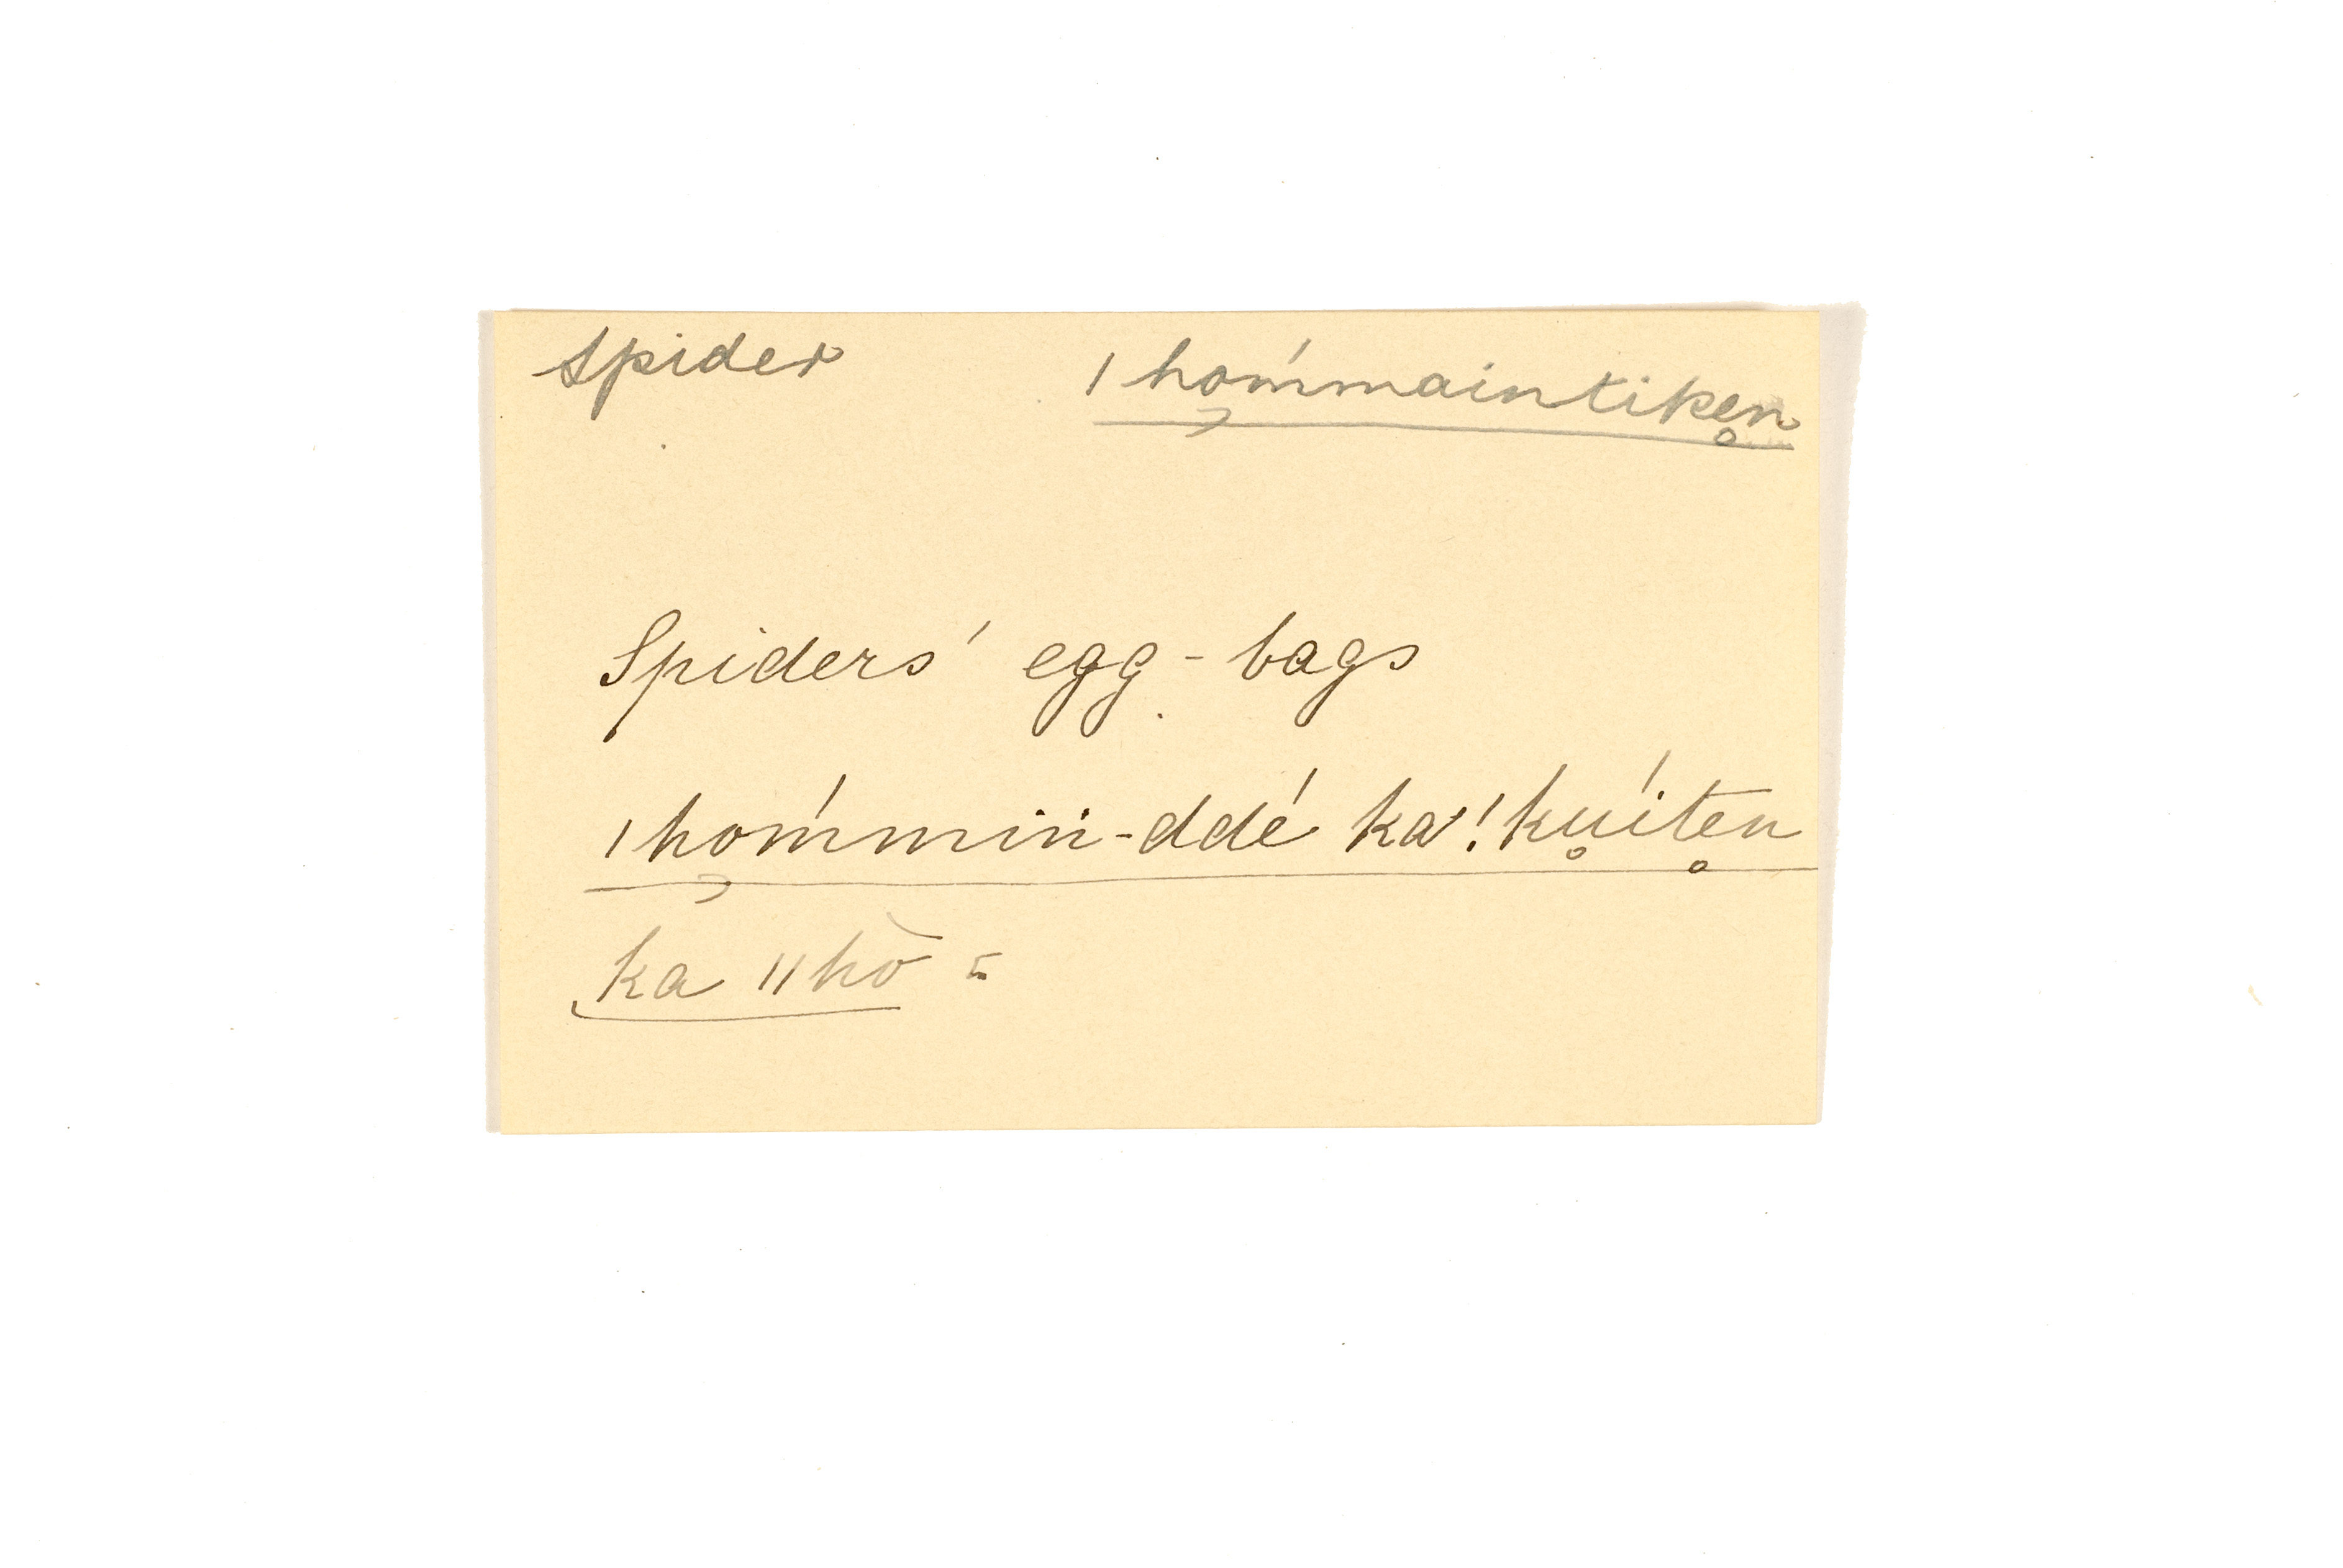 Spider ǀhó̦mmaintike̥n
Spiders' egg-bags
ǀhó̦mmin̈-ddé ka !kú̥ite̥n
ka ǁhò̄ =